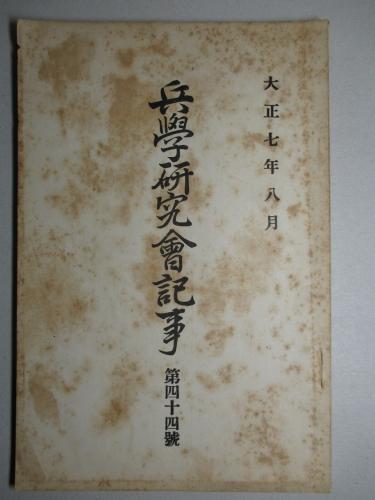 大正七年八月
兵學研究會記事
第四十四號